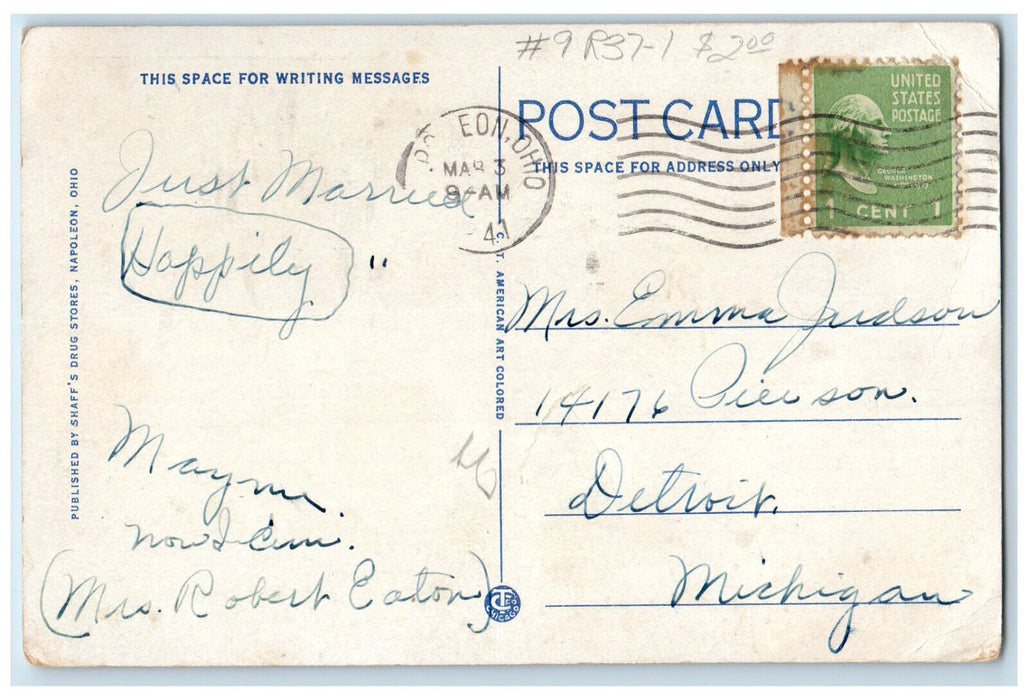 #9 R37-1 $2.00
THIS SPACE FOR WRITING MESSAGES
POST CARD
THIS SPACE FOR ADDRESS ONLY
EON, OHIO
MAR 3
8-AM
41
UNITED
STATES
POSTAGE
GEORGE
WASHINGTON
1 CENT 1
Just Married
Happily "
Mayme
now I am.
(Mrs. Robert Eaton)
Mrs. Emma Judson
14176 Pierson.
Detroit,
Michigan
PUBLISHED BY SHAFF'S DRUG STORES, NAPOLEON, OHIO
C. T. AMERICAN ART COLORED
CHICAGO